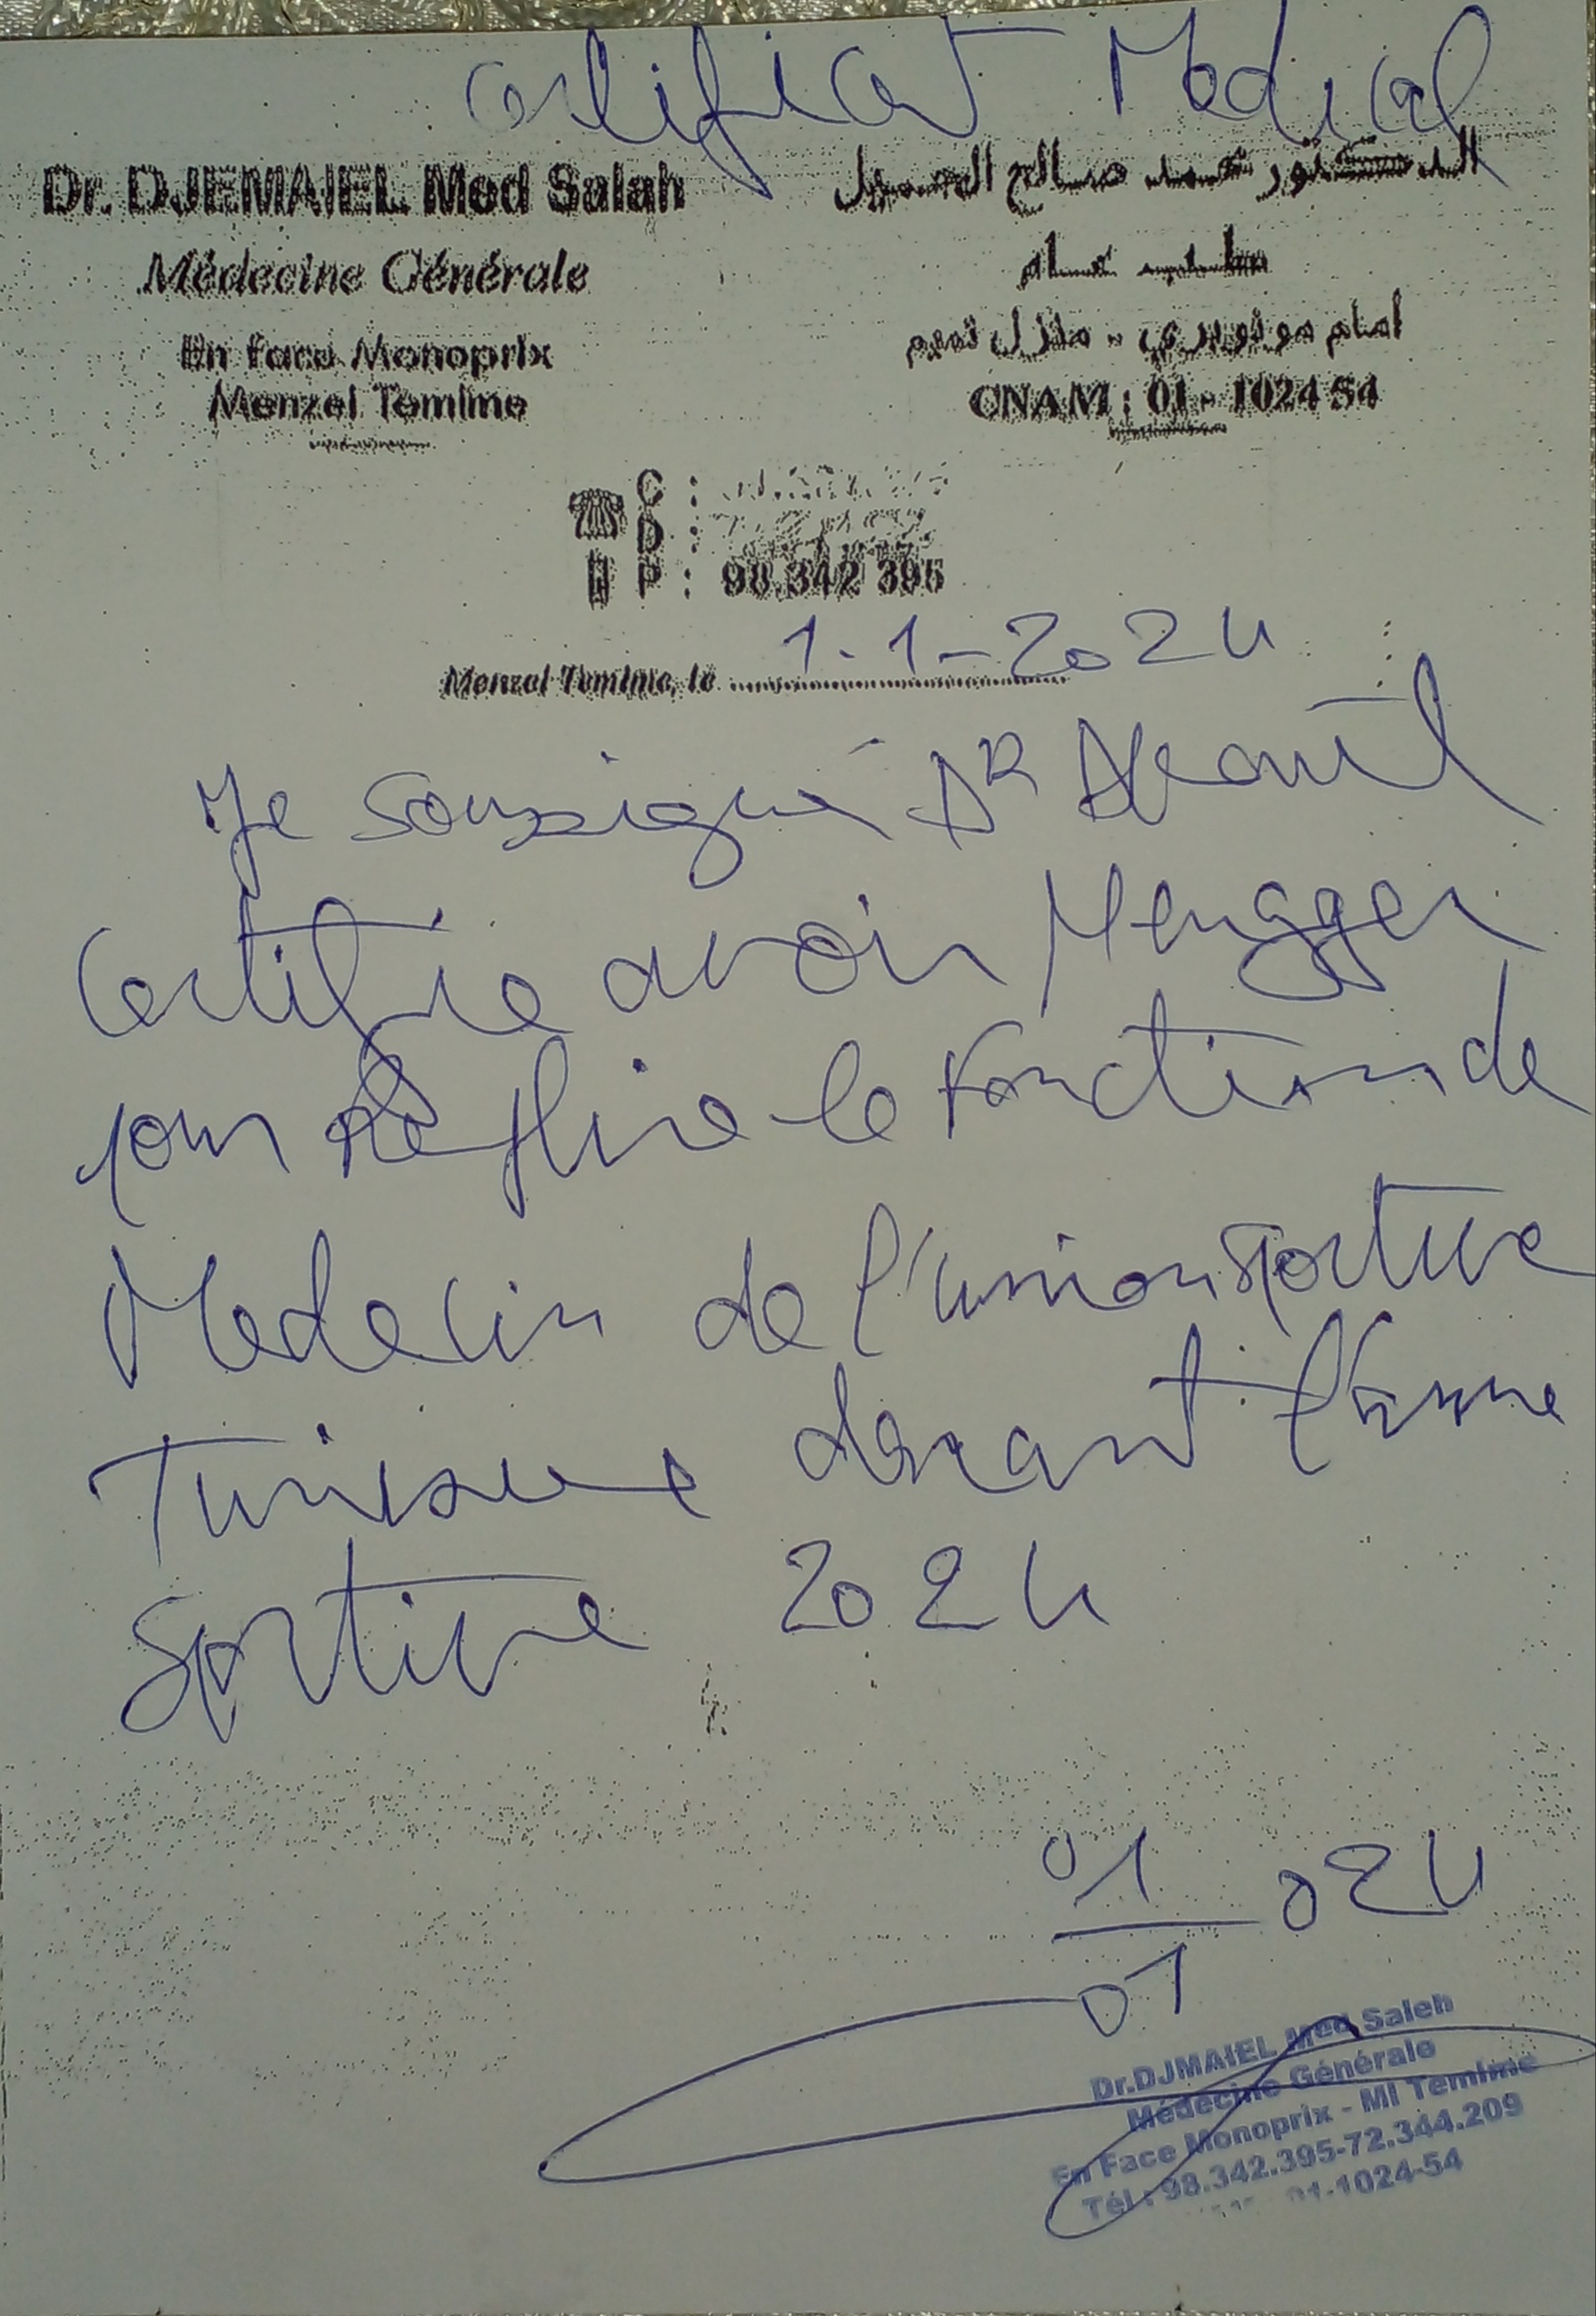 Certificat Medical
Dr. DJEMAIEL Med Salah
الدكتور محمد صالح الجميل
Médecine Générale
طبيب عام
En face Monoprix
امام مونوبري - منزل تميم
Menzel Temime
CNAM : 01 - 1024 54
C :
D :
P : 98.342 395
Menzel Temime, le 1-1-2024
Je soussigné DR
Certifie avoir
pour le Fonction de
Medecin de l'union sportive
Tunisienne durant l'anne
sportive 2024
01/01 024
Dr.DJMAIEL Med Saleh
Médecine Générale
En Face Monoprix - Ml Temime
Tél : 98.342.395-72.344.209
01-1024-54